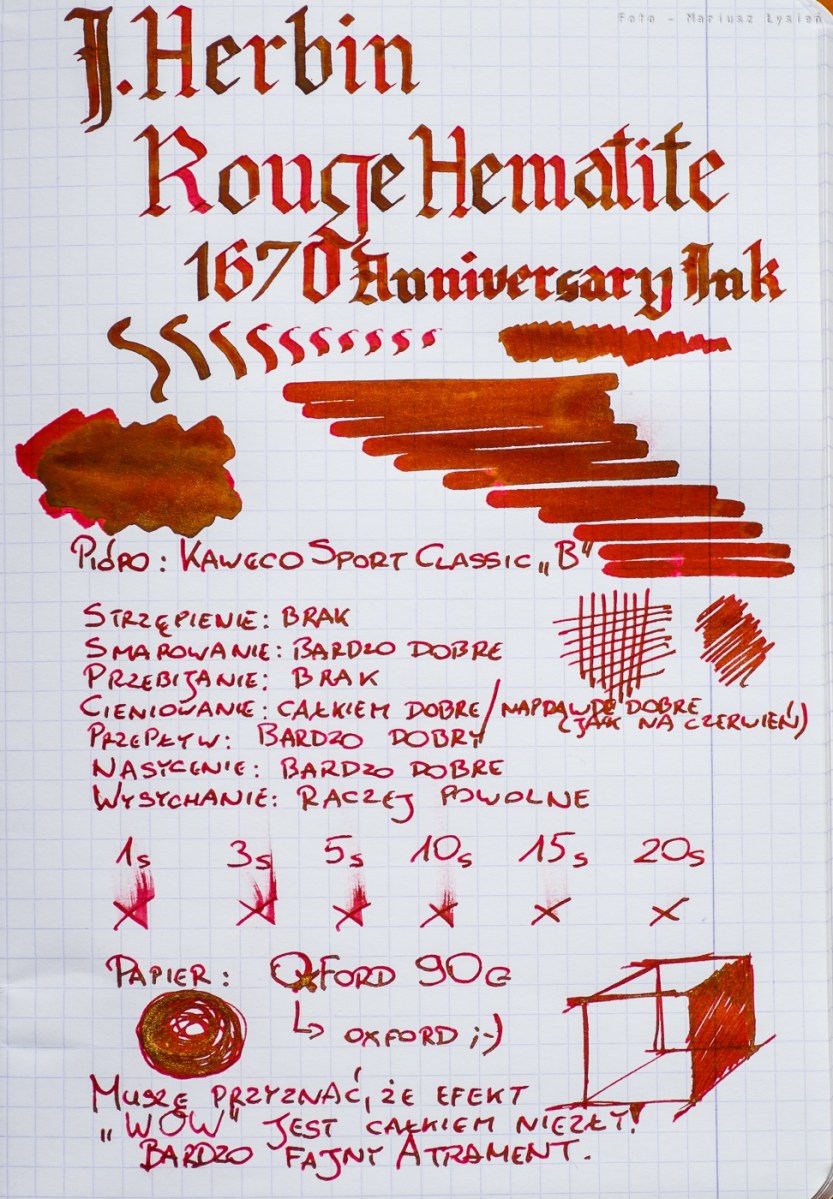 Foto - Mariusz Łysień
J. Herbin
Rouge Hematite
1670 Anniversary Ink
Pióro: Kaweco Sport Classic „B"
Strzępienie: brak
Smarowanie: bardzo dobre
Przebijanie: brak
Cieniowanie: całkiem dobre / naprawdę dobre
(jak na czerwień)
Przepływ: bardzo dobry
Nasycenie: bardzo dobre
Wysychanie: raczej powolne
1s 3s 5s 10s 15s 20s
Papier: Oxford 90g
↳ oxford ;-)
Muszę przyznać, że efekt
„WOW" jest całkiem niezły!
Bardzo fajny atrament.